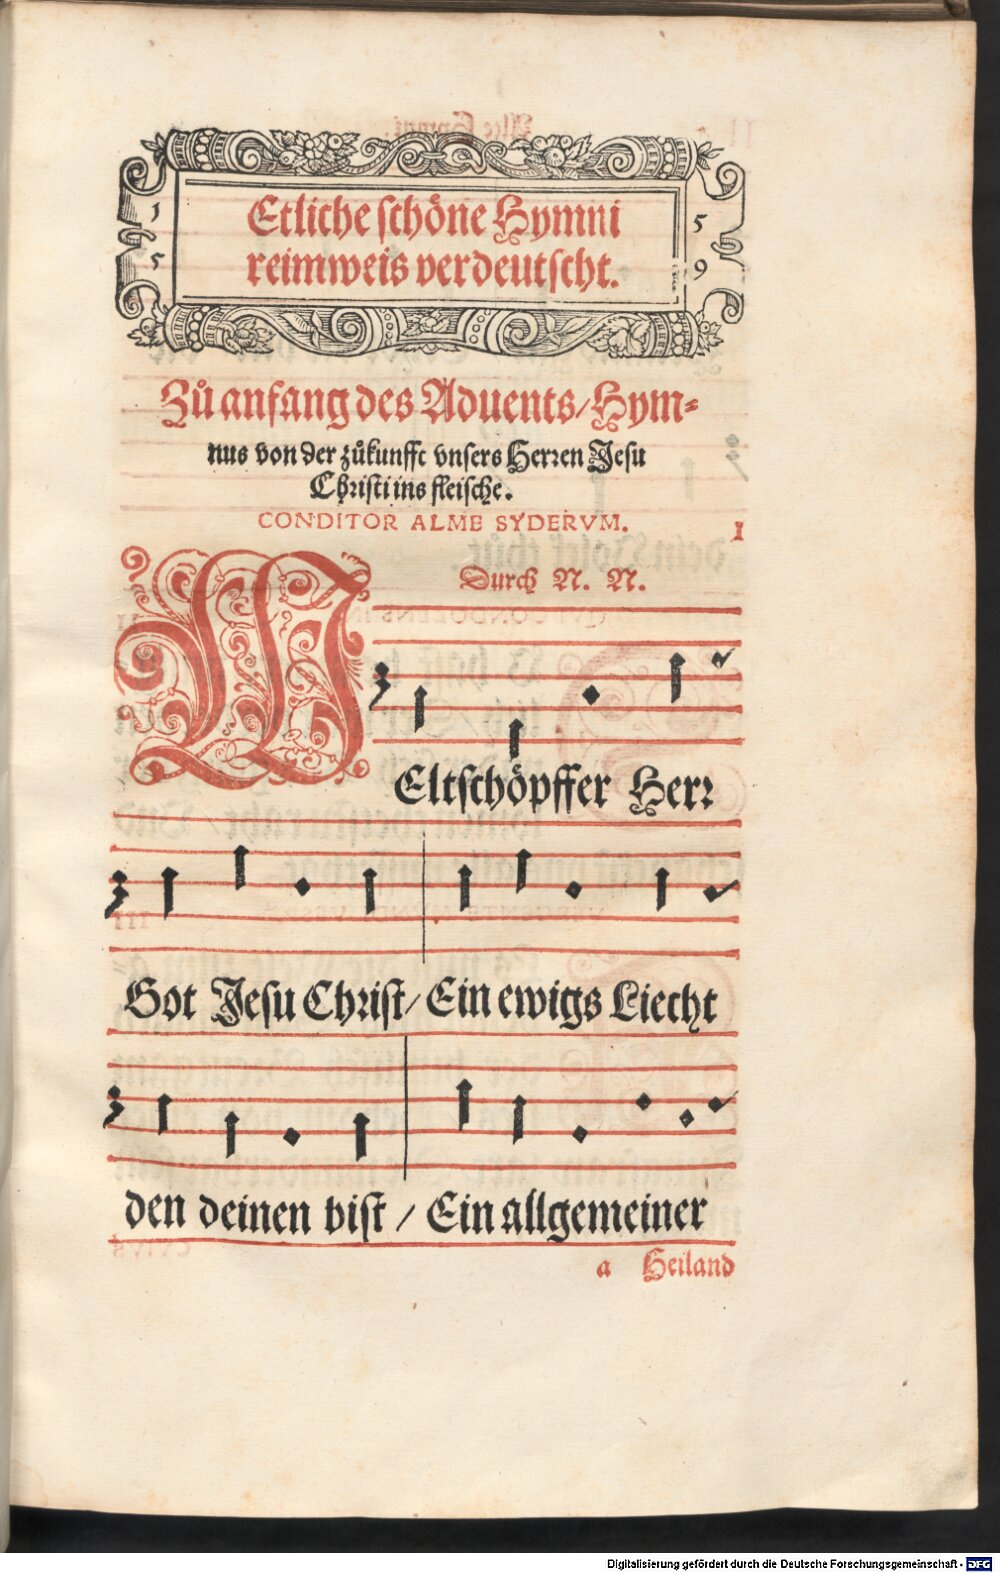 1 5
5 9
Etliche schöne Hymni
reimweis verdeutscht.
Zů anfang des Aduents/ Hym⸗
nus von der zůkunfft vnsers Herren Jesu
Christi ins fleische.
CONDITOR ALME SYDERVM.
I
Durch N. N.
WEltschöpffer Herr
Got Jesu Christ/ Ein ewigs Liecht
den deinen bist / Ein allgemeiner
a Heiland
Digitalisierung gefördert durch die Deutsche Forschungsgemeinschaft - DFG